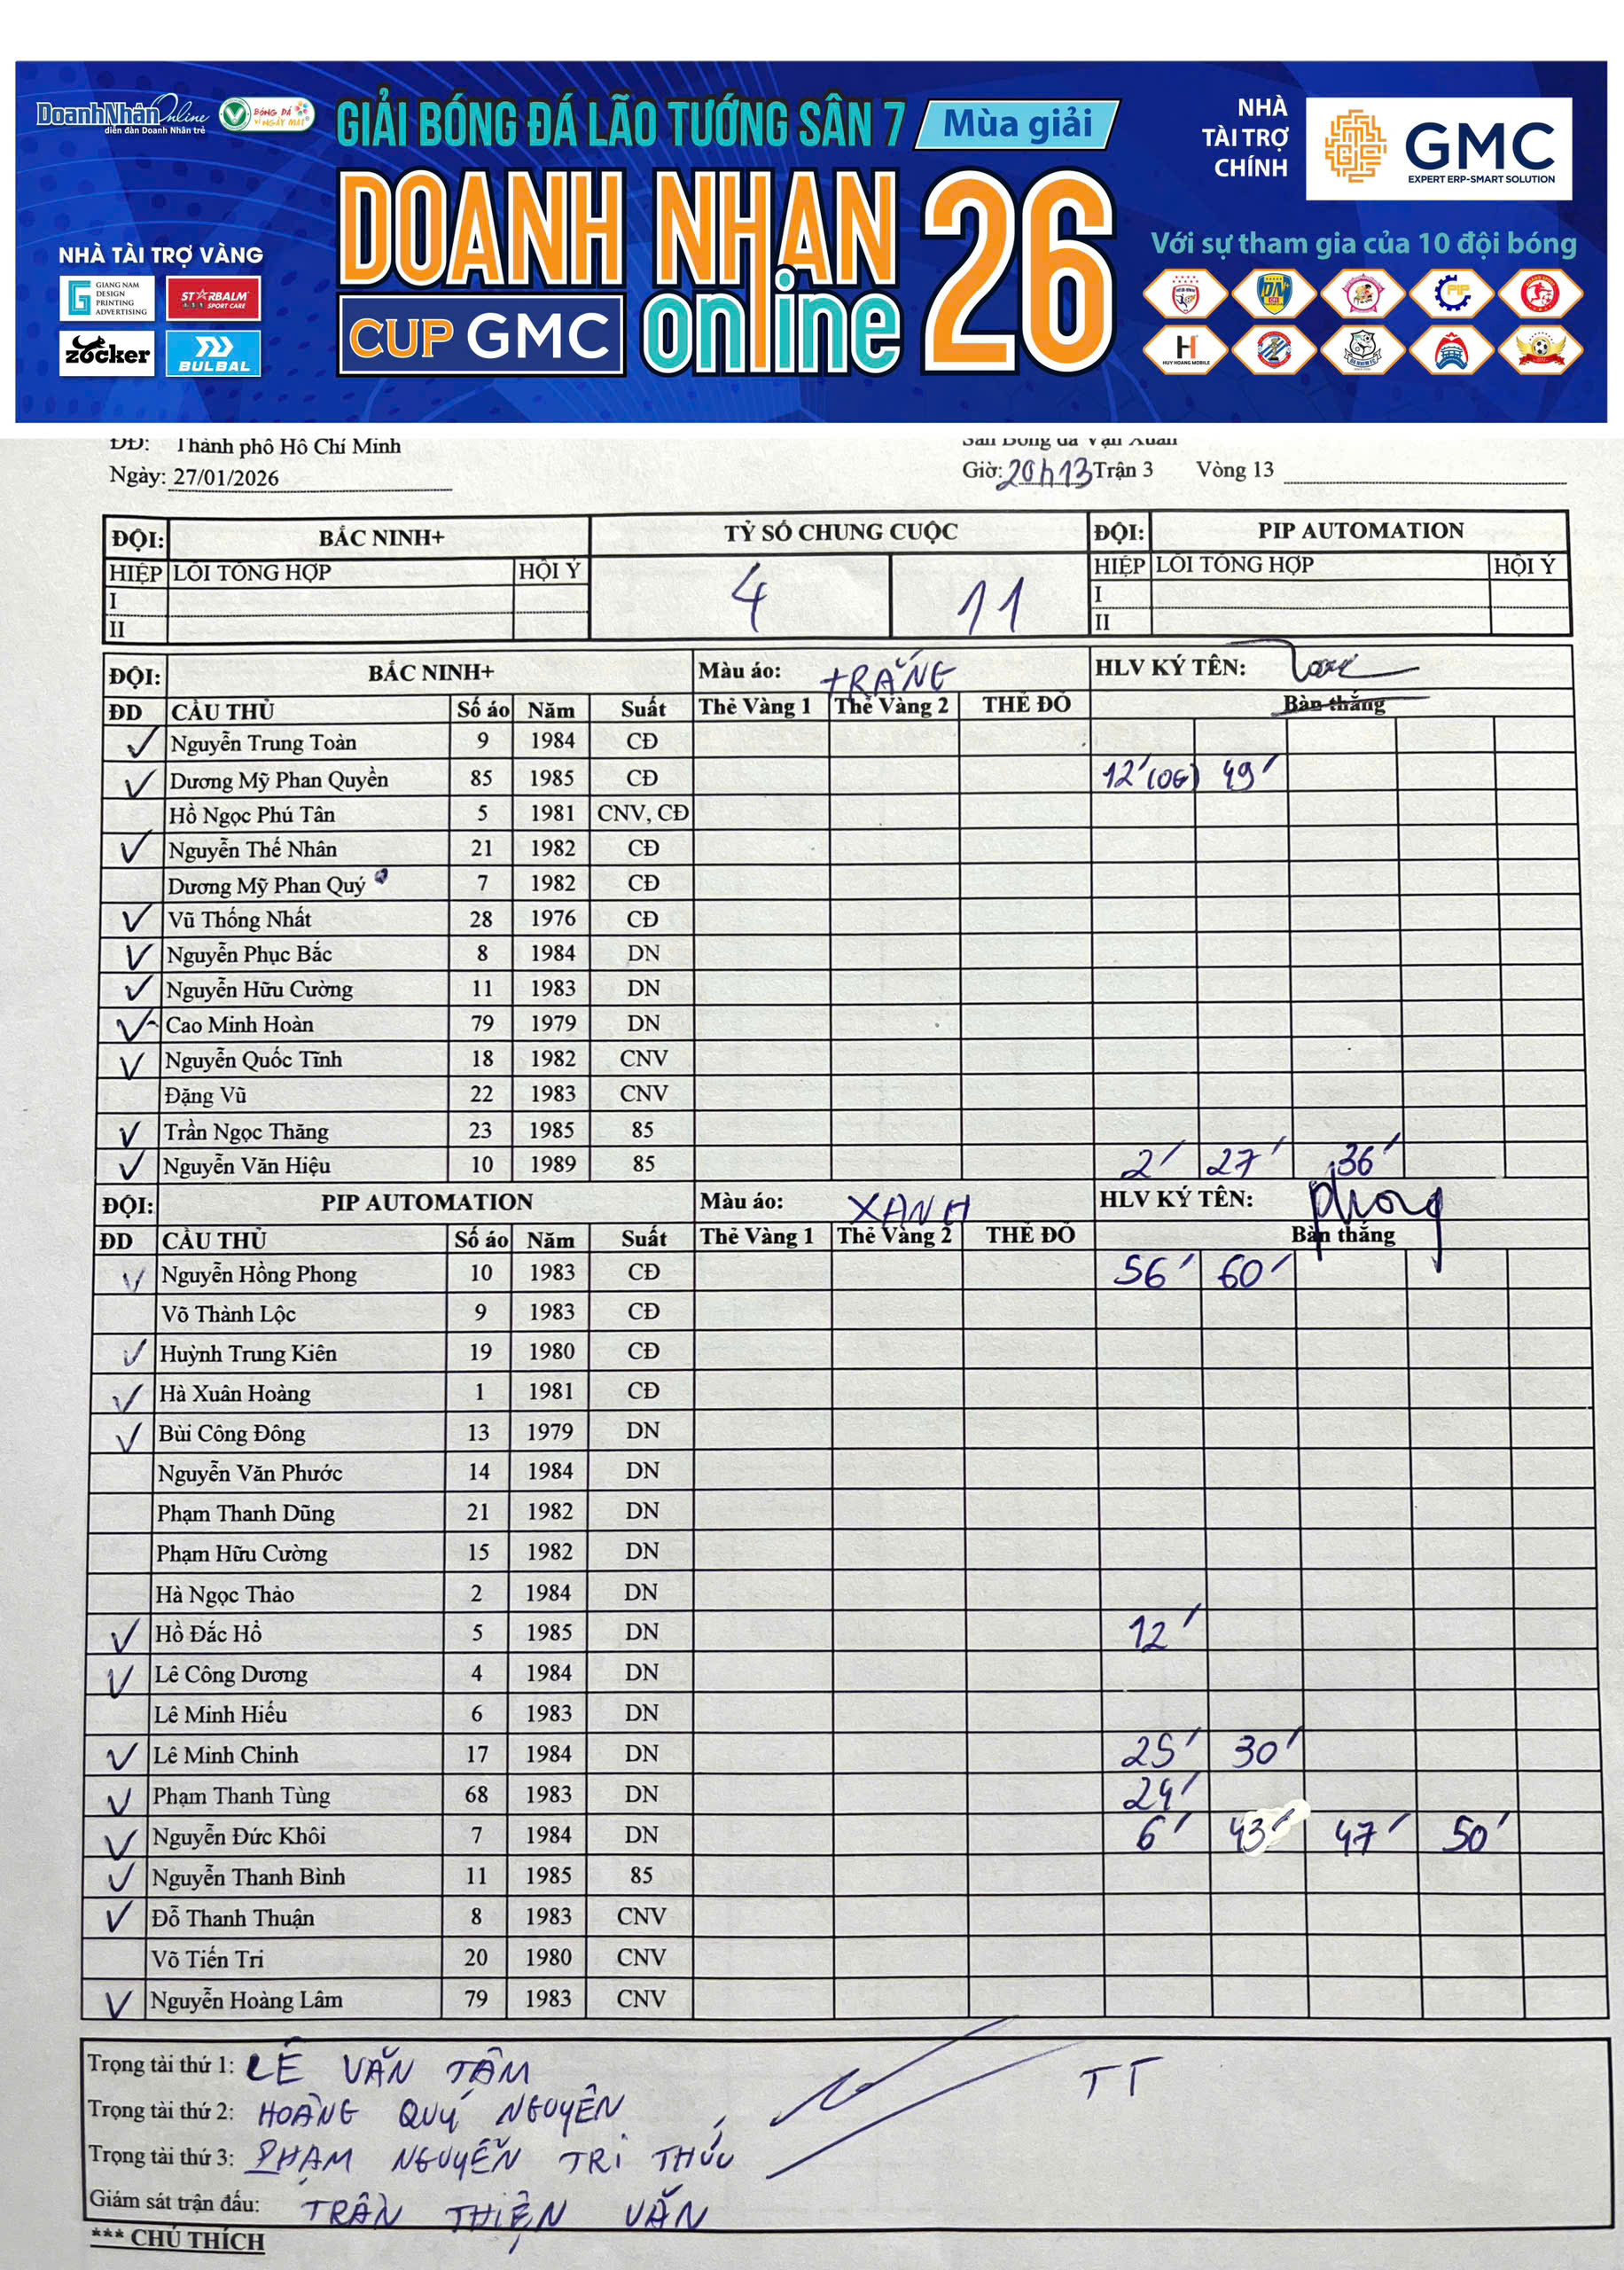 DoanhNhân Online
diễn đàn Doanh Nhân trẻ
BÓNG ĐÁ
VÌ NGÀY MAI
GIẢI BÓNG ĐÁ LÃO TƯỚNG SÂN 7 Mùa giải
DOANH NHÂN 26
CUP GMC online
NHÀ
TÀI TRỢ
CHÍNH
GMC
EXPERT ERP-SMART SOLUTION
NHÀ TÀI TRỢ VÀNG
GIANG NAM
DESIGN
PRINTING
ADVERTISING
STARBALM
SPORT CARE
zocker
BULBAL
Với sự tham gia của 10 đội bóng
PIP
HUY HOANG MOBILE
ĐĐ: Thành phố Hồ Chí Minh Sân Bóng đá Vạn Xuân
Ngày: 27/01/2026 Giờ: 20h13 Trận 3 Vòng 13
ĐỘI: BẮC NINH+ TỶ SỐ CHUNG CUỘC ĐỘI: PIP AUTOMATION
HIỆP LỖI TỔNG HỢP HỘI Ý 4 11 HIỆP LỖI TỔNG HỢP HỘI Ý
I I
II II
ĐỘI: BẮC NINH+ Màu áo: TRẮNG HLV KÝ TÊN:
ĐD CẦU THỦ Số áo Năm Suất Thẻ Vàng 1 Thẻ Vàng 2 THẺ ĐỎ Bàn thắng
Nguyễn Trung Toàn 9 1984 CĐ
Dương Mỹ Phan Quyền 85 1985 CĐ 12'(OG) 49'
Hồ Ngọc Phú Tân 5 1981 CNV, CĐ
Nguyễn Thế Nhân 21 1982 CĐ
Dương Mỹ Phan Quý 7 1982 CĐ
Vũ Thống Nhất 28 1976 CĐ
Nguyễn Phục Bắc 8 1984 DN
Nguyễn Hữu Cường 11 1983 DN
Cao Minh Hoàn 79 1979 DN
Nguyễn Quốc Tĩnh 18 1982 CNV
Đặng Vũ 22 1983 CNV
Trần Ngọc Thăng 23 1985 85
Nguyễn Văn Hiệu 10 1989 85 2' 27' 36'
ĐỘI: PIP AUTOMATION Màu áo: XANH HLV KÝ TÊN: phong
ĐD CẦU THỦ Số áo Năm Suất Thẻ Vàng 1 Thẻ Vàng 2 THẺ ĐỎ Bàn thắng
Nguyễn Hồng Phong 10 1983 CĐ 56' 60'
Võ Thành Lộc 9 1983 CĐ
Huỳnh Trung Kiên 19 1980 CĐ
Hà Xuân Hoàng 1 1981 CĐ
Bùi Công Đông 13 1979 DN
Nguyễn Văn Phước 14 1984 DN
Phạm Thanh Dũng 21 1982 DN
Phạm Hữu Cường 15 1982 DN
Hà Ngọc Thảo 2 1984 DN
Hồ Đắc Hồ 5 1985 DN 12'
Lê Công Dương 4 1984 DN
Lê Minh Hiếu 6 1983 DN
Lê Minh Chinh 17 1984 DN 25' 30'
Phạm Thanh Tùng 68 1983 DN 24'
Nguyễn Đức Khôi 7 1984 DN 6' 43' 47' 50'
Nguyễn Thanh Bình 11 1985 85
Đỗ Thanh Thuận 8 1983 CNV
Võ Tiến Tri 20 1980 CNV
Nguyễn Hoàng Lâm 79 1983 CNV
Trọng tài thứ 1: LÊ VĂN TÂM TT
Trọng tài thứ 2: HOÀNG QUÝ NGUYÊN
Trọng tài thứ 3: PHẠM NGUYỄN TRI THỨC
Giám sát trận đấu: TRẦN THIỆN VĂN
*** CHÚ THÍCH